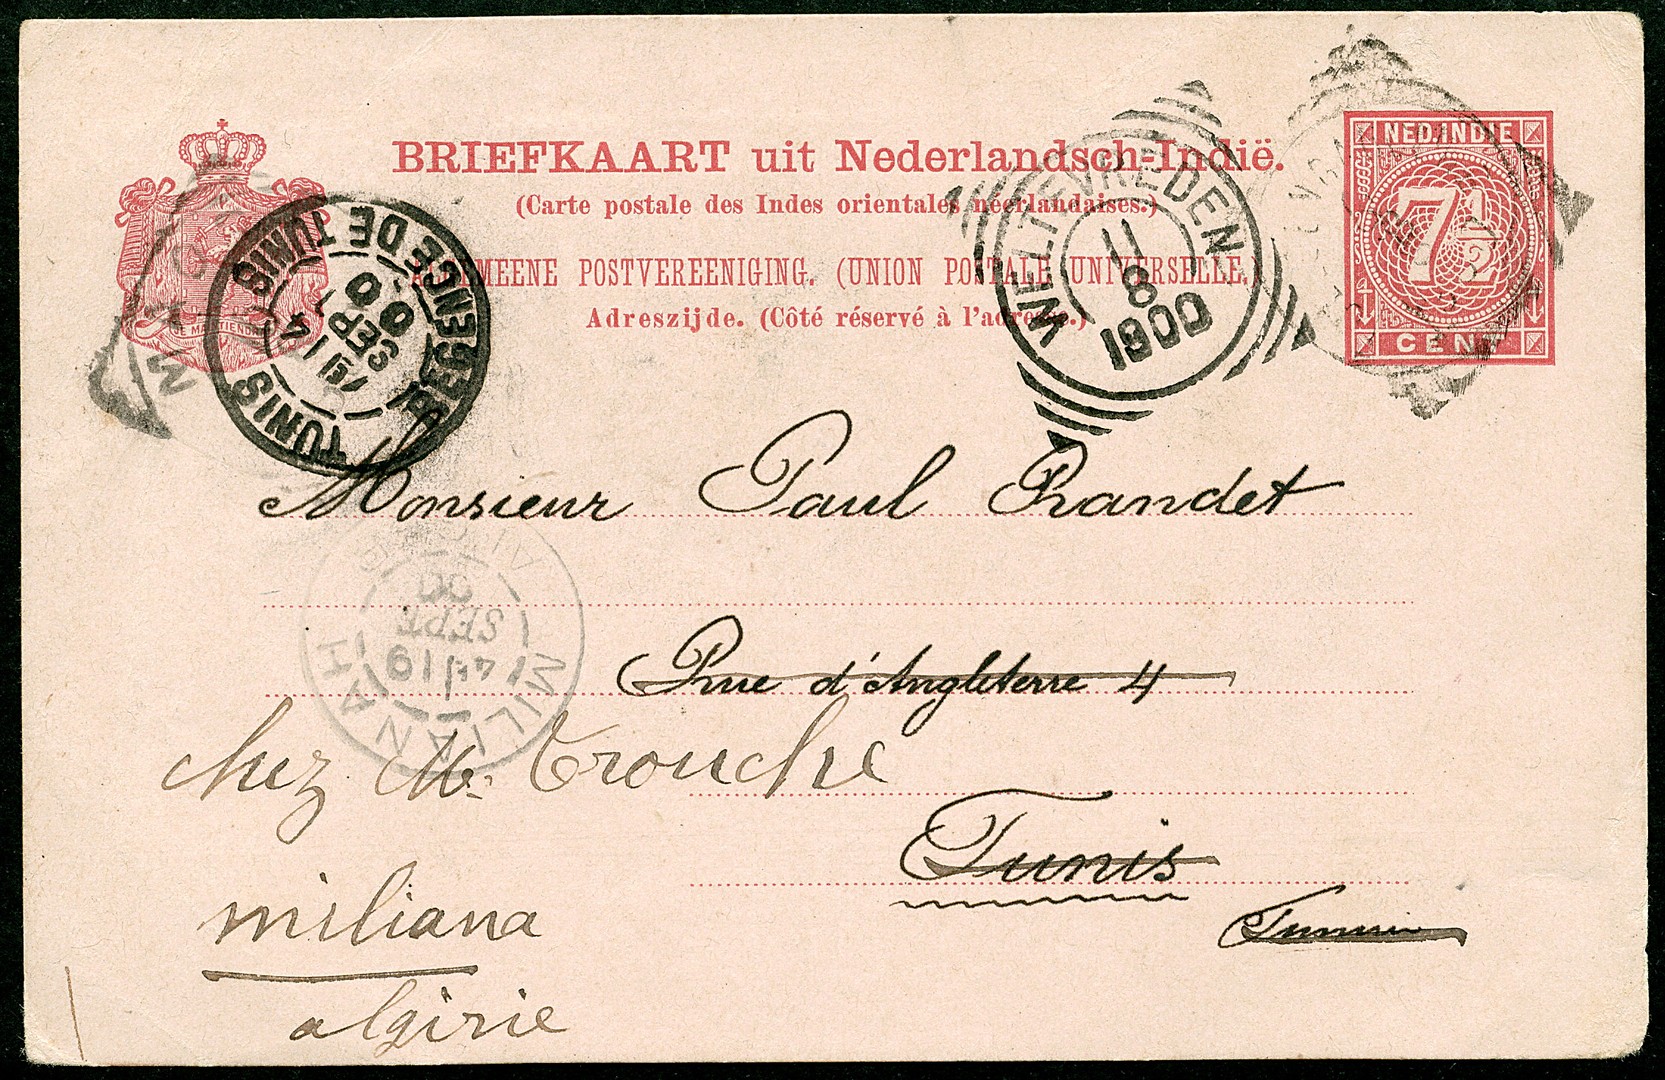 BRIEFKAART uit Nederlandsch-Indië.
(Carte postale des Indes orientales néerlandaises.)
ALGEMEENE POSTVEREENIGING. (UNION POSTALE UNIVERSELLE.)
Adreszijde. (Côté réservé à l'adresse.)
JE MAINTIENDRAI
NED. INDIE
7 1/2
CENT
WELTEVREDEN
11
8
1900
REGENCE DE TUNIS
TUNIS
14
SEPT
00
Monsieur Paul Randet
Rue d'Angleterre 4
Tunis
Tunisie
chez Mr. Trouche
miliana
algirie
MILIANAH
19
SEPT
00